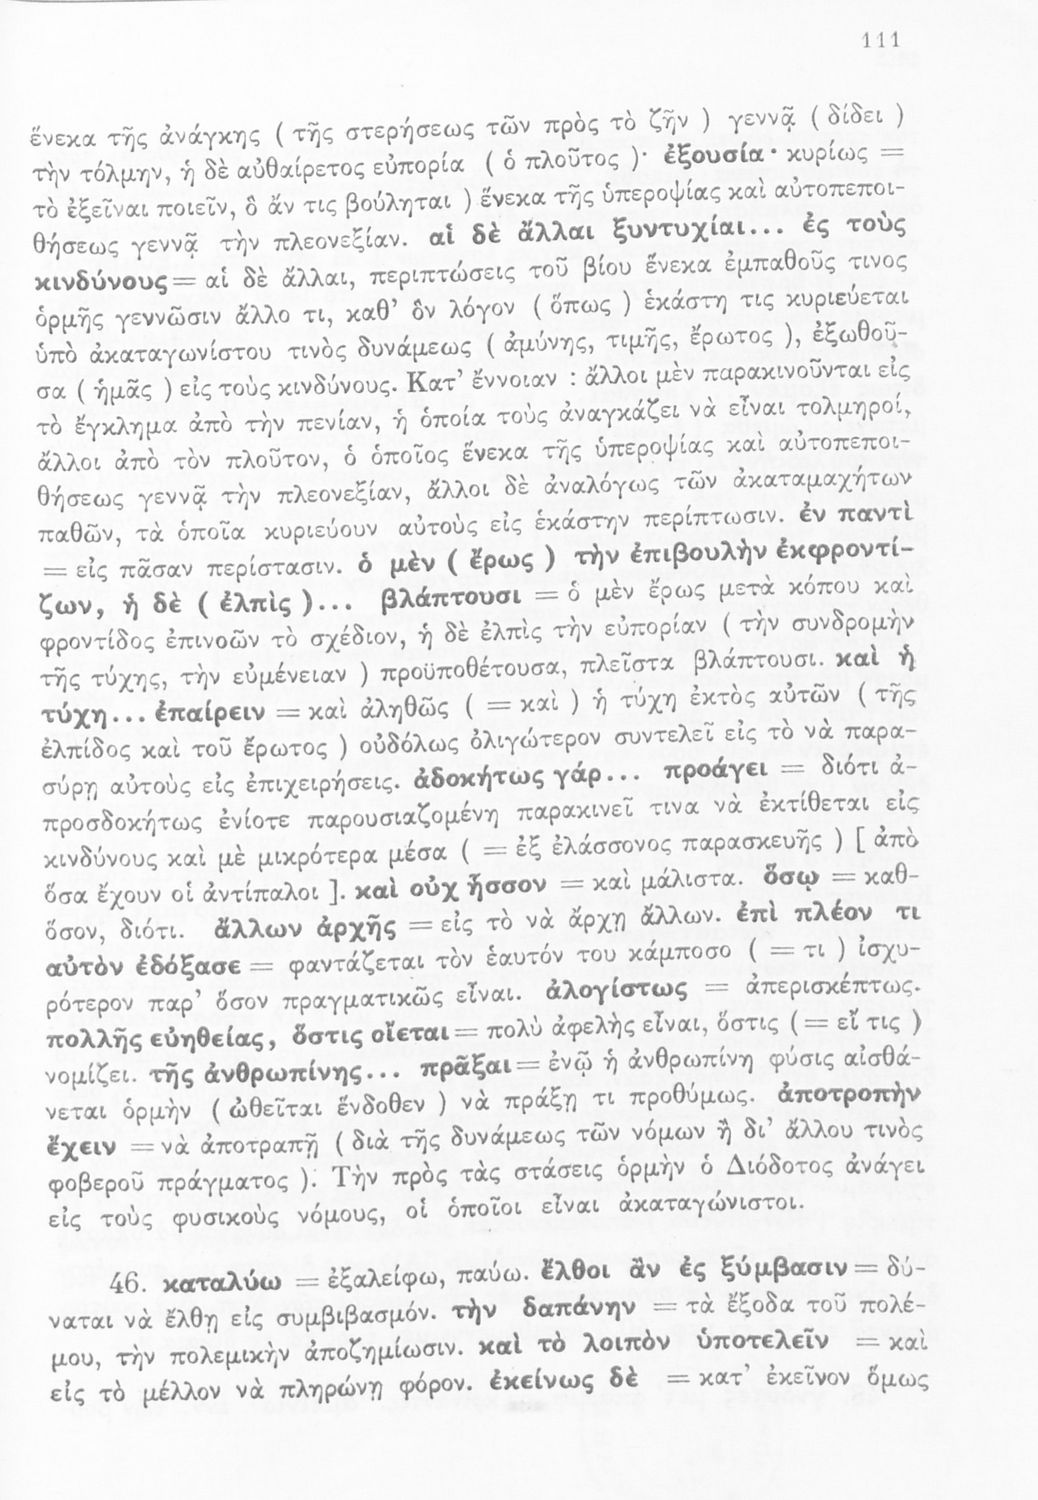 111
ἕνεκα τῆς ἀνάγκης ( τῆς στερήσεως τῶν πρὸς τὸ ζῆν ) γεννᾷ ( δίδει )
τὴν τόλμην, ἡ δὲ αὐθαίρετος εὐπορία ( ὁ πλοῦτος )· ἐξουσία· κυρίως =
τὸ ἐξεῖναι ποιεῖν, ὃ ἄν τις βούληται ) ἕνεκα τῆς ὑπεροψίας καὶ αὐτοπεποι-
θήσεως γεννᾷ τὴν πλεονεξίαν. αἱ δὲ ἄλλαι ξυντυχίαι... ἐς τοὺς
κινδύνους = αἱ δὲ ἄλλαι, περιπτώσεις τοῦ βίου ἕνεκα ἐμπαθοῦς τινος
ὁρμῆς γεννῶσιν ἄλλο τι, καθ' ὃν λόγον ( ὅπως ) ἑκάστη τις κυριεύεται
ὑπὸ ἀκαταγωνίστου τινὸς δυνάμεως ( ἀμύνης, τιμῆς, ἔρωτος ), ἐξωθοῦ-
σα ( ἡμᾶς ) εἰς τοὺς κινδύνους. Κατ' ἔννοιαν : ἄλλοι μὲν παρακινοῦνται εἰς
τὸ ἔγκλημα ἀπὸ τὴν πενίαν, ἡ ὁποία τοὺς ἀναγκάζει νὰ εἶναι τολμηροί,
ἄλλοι ἀπὸ τὸν πλοῦτον, ὁ ὁποῖος ἕνεκα τῆς ὑπεροψίας καὶ αὐτοπεποι-
θήσεως γεννᾷ τὴν πλεονεξίαν, ἄλλοι δὲ ἀναλόγως τῶν ἀκαταμαχήτων
παθῶν, τὰ ὁποῖα κυριεύουν αὐτοὺς εἰς ἑκάστην περίπτωσιν. ἐν παντὶ
= εἰς πᾶσαν περίστασιν. ὁ μὲν ( ἔρως ) τὴν ἐπιβουλὴν ἐκφροντί-
ζων, ἡ δὲ ( ἐλπὶς )... βλάπτουσι = ὁ μὲν ἔρως μετὰ κόπου καὶ
φροντίδος ἐπινοῶν τὸ σχέδιον, ἡ δὲ ἐλπὶς τὴν εὐπορίαν ( τὴν συνδρομὴν
τῆς τύχης, τὴν εὐμένειαν ) προϋποθέτουσα, πλεῖστα βλάπτουσι. καὶ ἡ
τύχη... ἐπαίρειν = καὶ ἀληθῶς ( = καὶ ) ἡ τύχη ἐκτὸς αὐτῶν ( τῆς
ἐλπίδος καὶ τοῦ ἔρωτος ) οὐδόλως ὀλιγώτερον συντελεῖ εἰς τὸ νὰ παρα-
σύρῃ αὐτοὺς εἰς ἐπιχειρήσεις. ἀδοκήτως γάρ... προάγει = διότι ἀ-
προσδοκήτως ἐνίοτε παρουσιαζομένη παρακινεῖ τινα νὰ ἐκτίθεται εἰς
κινδύνους καὶ μὲ μικρότερα μέσα ( = ἐξ ἐλάσσονος παρασκευῆς ) [ ἀπὸ
ὅσα ἔχουν οἱ ἀντίπαλοι ]. καὶ οὐχ ἧσσον = καὶ μάλιστα. ὅσῳ = καθ-
όσον, διότι. ἄλλων ἀρχῆς = εἰς τὸ νὰ ἄρχῃ ἄλλων. ἐπὶ πλέον τι
αὐτὸν ἐδόξασε = φαντάζεται τὸν ἑαυτόν του κάμποσο ( = τι ) ἰσχυ-
ρότερον παρ' ὅσον πραγματικῶς εἶναι. ἀλογίστως = ἀπερισκέπτως.
πολλῆς εὐηθείας, ὅστις οἴεται = πολὺ ἀφελὴς εἶναι, ὅστις ( = εἴ τις )
νομίζει. τῆς ἀνθρωπίνης... πρᾶξαι = ἐνῷ ἡ ἀνθρωπίνη φύσις αἰσθά-
νεται ὁρμὴν ( ὠθεῖται ἔνδοθεν ) νὰ πράξῃ τι προθύμως. ἀποτροπὴν
ἔχειν = νὰ ἀποτραπῇ ( διὰ τῆς δυνάμεως τῶν νόμων ἢ δι' ἄλλου τινὸς
φοβεροῦ πράγματος ). Τὴν πρὸς τὰς στάσεις ὁρμὴν ὁ Διόδοτος ἀνάγει
εἰς τοὺς φυσικοὺς νόμους, οἱ ὁποῖοι εἶναι ἀκαταγώνιστοι.
46. καταλύω = ἐξαλείφω, παύω. ἔλθοι ἂν ἐς ξύμβασιν = δύ-
ναται νὰ ἔλθῃ εἰς συμβιβασμόν. τὴν δαπάνην = τὰ ἔξοδα τοῦ πολέ-
μου, τὴν πολεμικὴν ἀποζημίωσιν. καὶ τὸ λοιπὸν ὑποτελεῖν = καὶ
εἰς τὸ μέλλον νὰ πληρώνῃ φόρον. ἐκείνως δὲ = κατ' ἐκεῖνον ὅμως